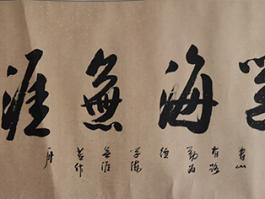 學海無涯
書山
有路
勤为
径
学海
無涯
苦作
舟